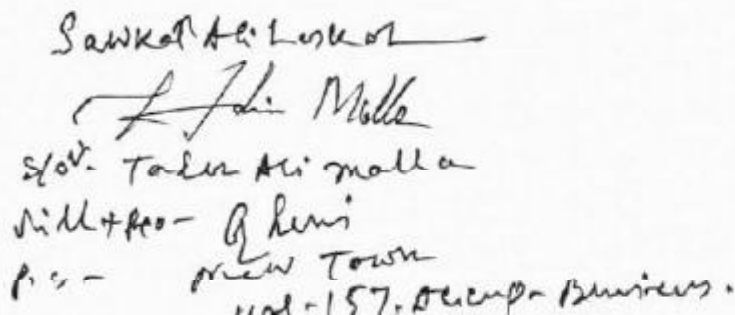 Sawkat Ali Laskar
Molla
S/o. Taher Ali molla
Vill+Po- Gheni
P.S- New Town
Kol-157. Occup- Business.